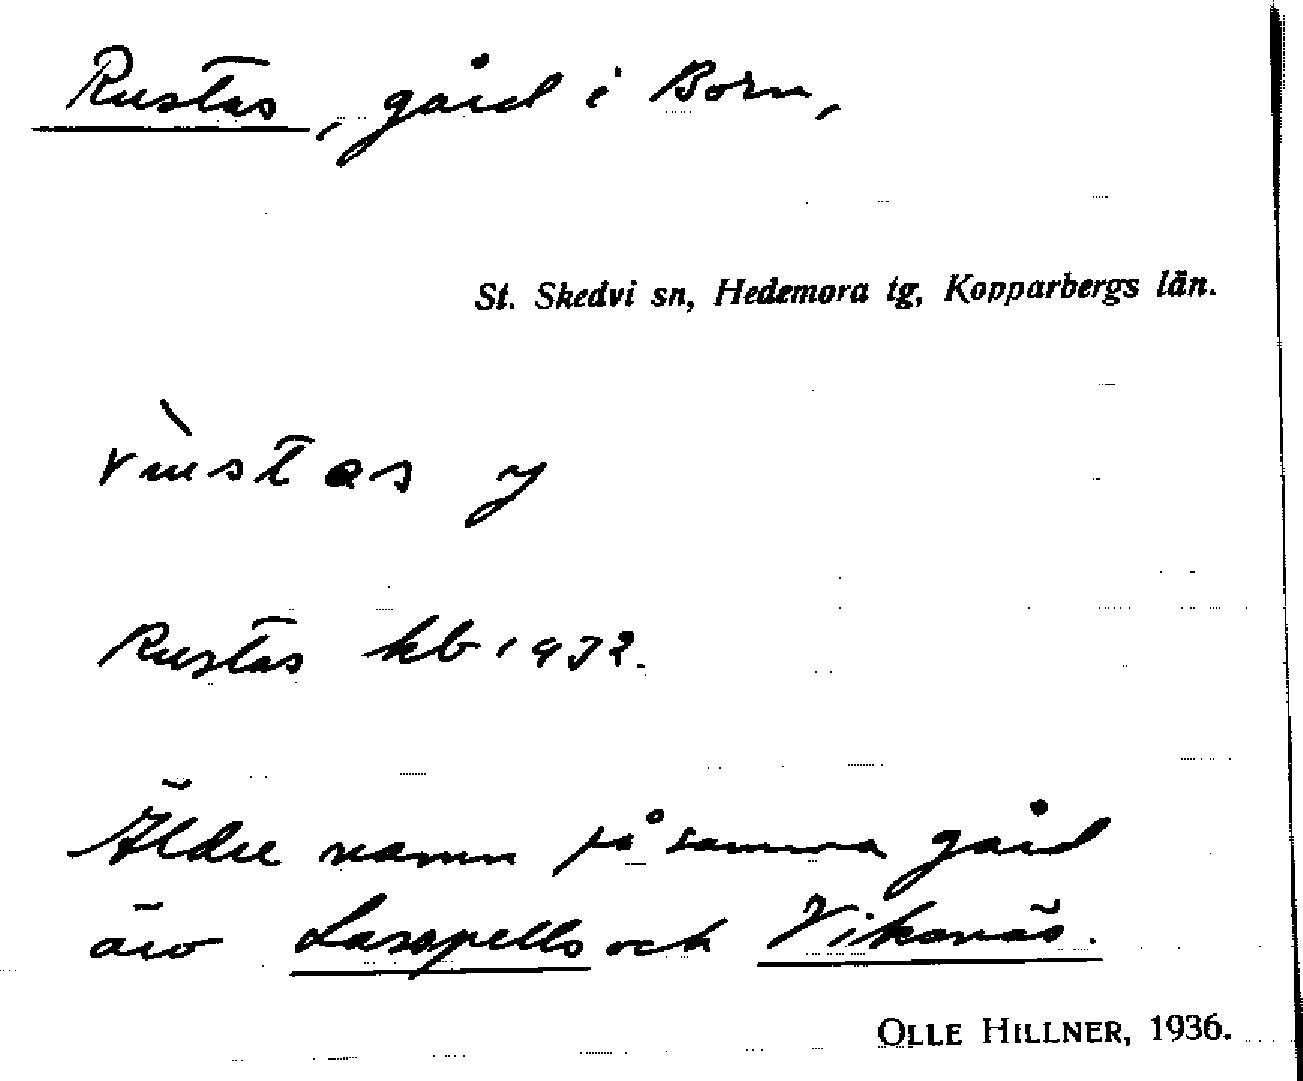 Rustas, gård i Born,
St. Skedvi sn, Hedemora tg, Kopparbergs län.
Rustas kb 1932.
Äldre namn på samma gård
äro Lasspells och Vikanäs.
OLLE HILLNER, 1936.